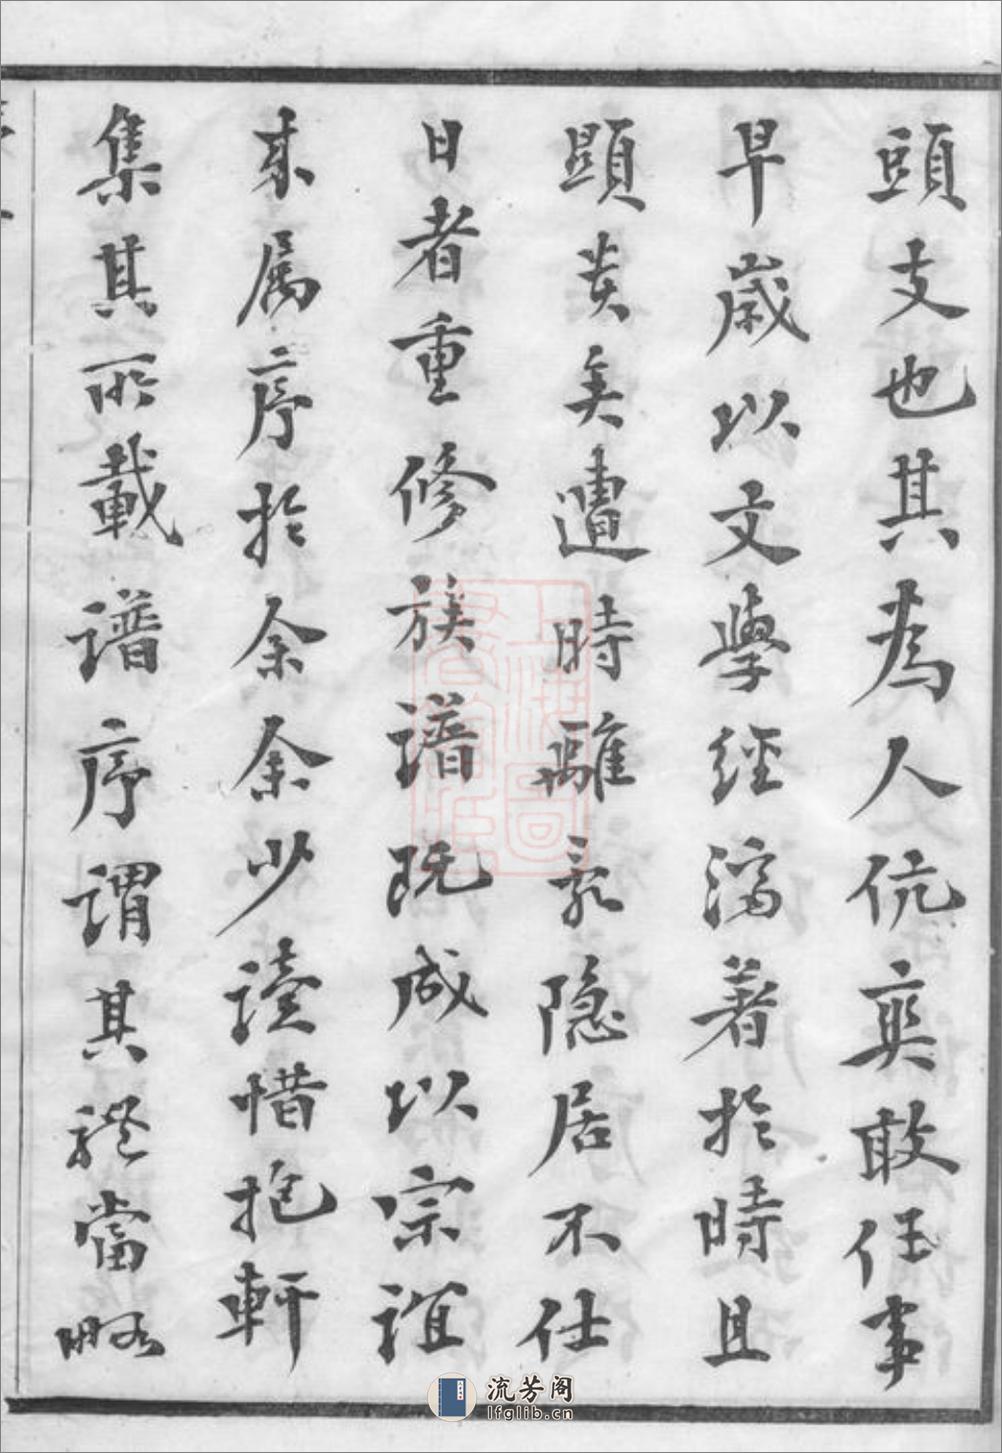 頭支也其為人伉爽敢任事
早歲以文學經濟著於時且
顯貴矣遭時離亂隐居不仕
日者重修族譜既成以宗誼
来属序於余余少讀惜抱軒
集其所載譜序謂其詳當略
流芳阁
lfglib.cn